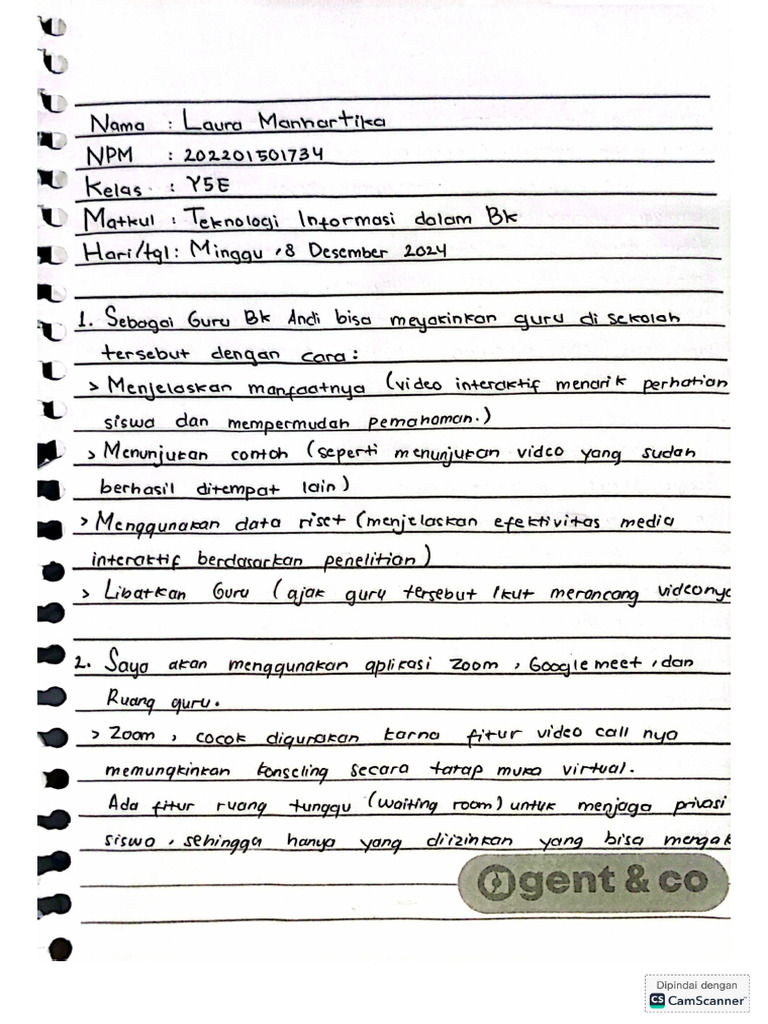 Nama : Laura Manhartika
NPM : 202201501734
Kelas : Y5E
Matkul : Teknologi Informasi dalam Bk
Hari/tgl : Minggu, 8 Desember 2024
1. Sebagai Guru Bk Andi bisa meyakinkan guru di sekolah
tersebut dengan cara :
> Menjelaskan manfaatnya (video interaktif menarik perhatian
siswa dan mempermudah pemahaman.)
> Menunjukan contoh (seperti menunjukan video yang sudah
berhasil ditempat lain)
> Menggunakan data riset (menjelaskan efektivitas media
interaktif berdasarkan penelitian)
> Libatkan Guru (ajak guru tersebut ikut merancang videonya
2. Saya akan menggunakan aplikasi Zoom, Google meet, dan
Ruang guru.
> Zoom, cocok digunakan karna fitur video call nya
memungkinkan konseling secara tatap muka virtual.
Ada fitur ruang tunggu (waiting room) untuk menjaga privasi
siswa, sehingga hanya yang diizinkan yang bisa mengak
gent & co
Dipindai dengan
CS CamScanner